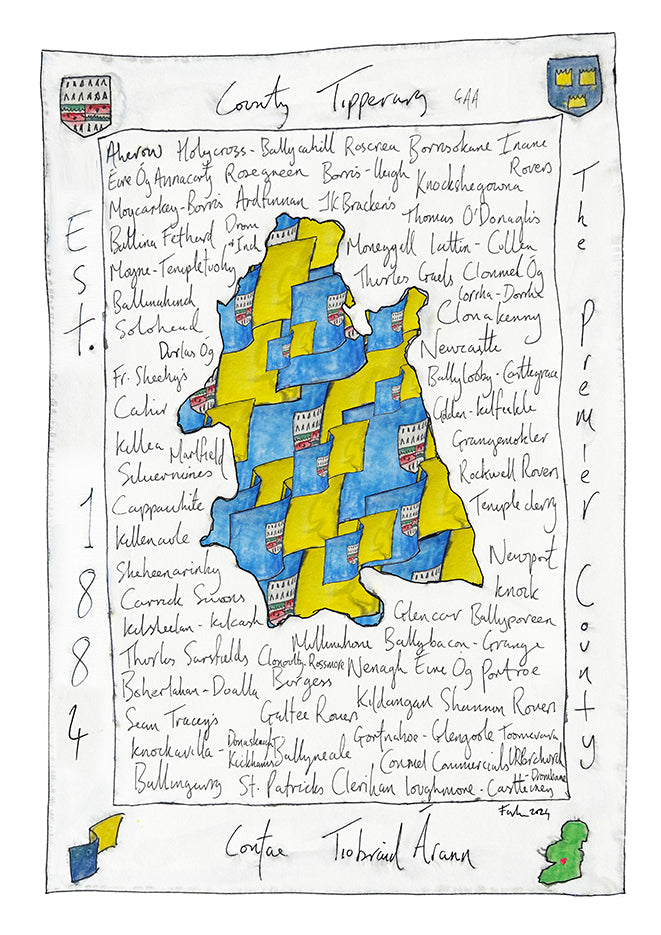 County Tipperary GAA
Aherlow Holycross - Ballycahill Roscrea Borrisokane Inane
Rovers
Éire Óg Annacarty Rosegreen Borris - Ileigh Knockshegowna
Moycarkey - Borris Ardfinnan JK Brackens
Thomas O'Donaghs
Ballina Fethard Drom
+ Inch
Moneygall Lattin - Cullen
Moyne - Templetuohy
Thurles Gaels Clonmel Óg
Ballinahinch
Lorrha - Dorrha
Solohead
Clonakenny
Durlas Óg
Newcastle
Fr. Sheehy's
Ballylooby - Castlegrace
Cahir
Golden - Kilfeakle
Killea
Marlfield
Grangemockler
Silvermines
Rockwell Rovers
Cappawhite
Templederry
Killenaule
Newport
Sheheenarinky
Knock
Carrick Swans
Glencar Ballyporeen
Kilsheelan - Kilcash
Mullinahone Ballybacon - Grange
Thurles Sarsfields Clonoulty - Rossmore Nenagh Éire Óg Portroe
Boherlahan - Dualla Burgess
Kildangan Shannon Rovers
Sean Tracey's Galtee Rovers
Gortnahoe - Glengoole Toomevara
Knockavilla - Donaskeigh
Kickhams
Ballyneale
Conmel Commercials
- Drombane
Ballingarry St. Patricks Clerihan Loughmore - Castleiney
Farh 2024
Est. 1884
The Premier County
Contae Tiobraid Árann